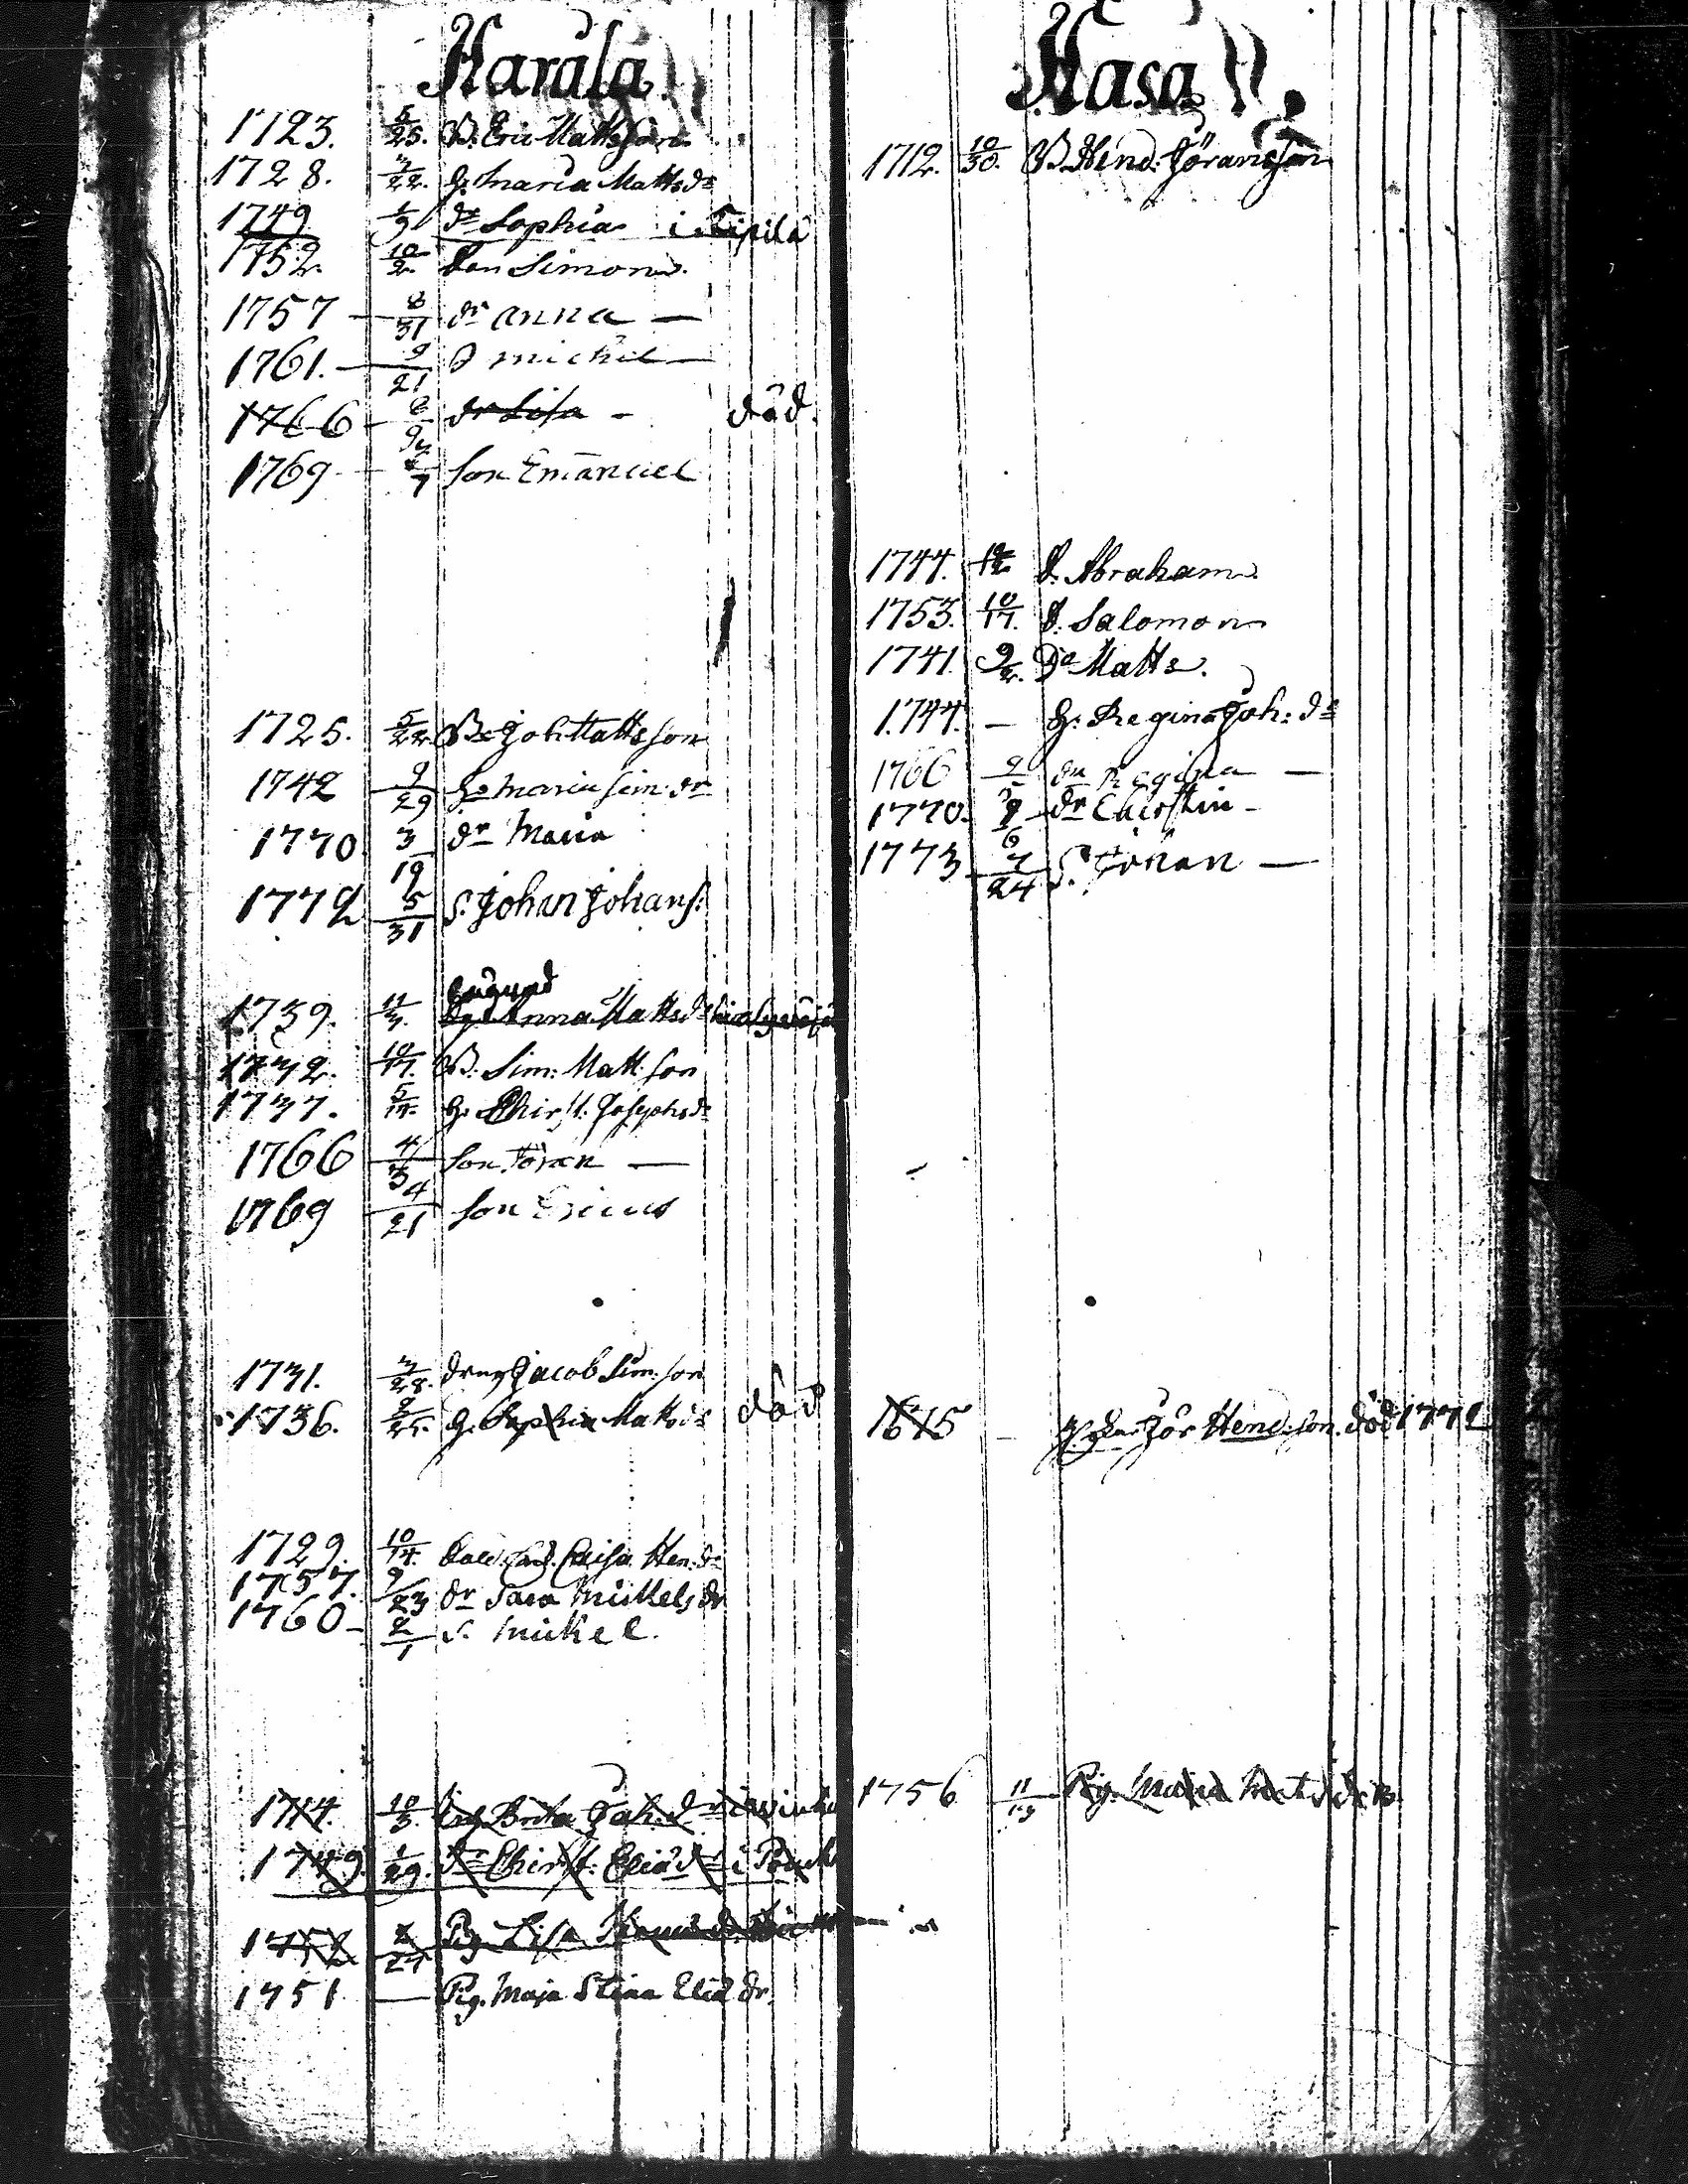 Harala
1723. 5/25. B. Eric Mattsson
1728. 3/22. H. Maria Matts dr
1749 1/9 dr Sophia i Tipila
1752. 10/2. Son Simon
1757 — 8/31 dr Anna —
1761. — 9/21 S michel —
1766 dr Lisa — död.
1769 — /7 son Emanuel
1725. 5/22. B. Joh Mattsson
1742 9/29 H. Maria Sim. dr
1770 3/19 dr Maria
1772 5/31 S. Johan Johans:
1739. 11/3. Anna Matts dr
1732. 10/17. B. Sim: Matt. son
1737. 5/14. H. Chirst. Josephs dr
1766 4/3 son Jöran —
1769 4/21 son Ericus
1731. 3/28. dreng Jacob Sim. son
1736. 2/25. H. Sophia Matts dr död
1729. 10/14. Caisa Hen. dr
1757. 9/23 dr Sara Mickels dr
1760 — 2/1 S. Mickel.
1714. 10/3. Brita Joh. dr
1749. 1/29. dr Chirst: Elia dr i
/27 Pig. Lisa
1751 — Pig. Maja Stina Elia dr.
Hasa
1712. 10/30. B. Hend. Jöransson
1744. S. Abraham
1753. 10/17. S. Salomon
1741. 9/2. Do Matts.
1744. — H. Regina Joh: dr
1766 dr Regina —
1770. dr Chirstin —
1773 7/24 S. Jöran —
1675 — Jör Hend. son. död 1772
1756 11/19 Pig. Maria